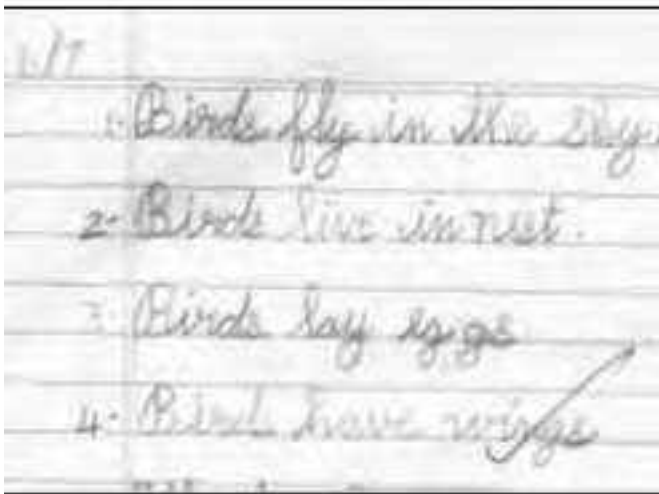 1/7
1. Birds fly in the sky.
2. Birds live in nest.
3. Birds lay eggs
4. Bird have wings